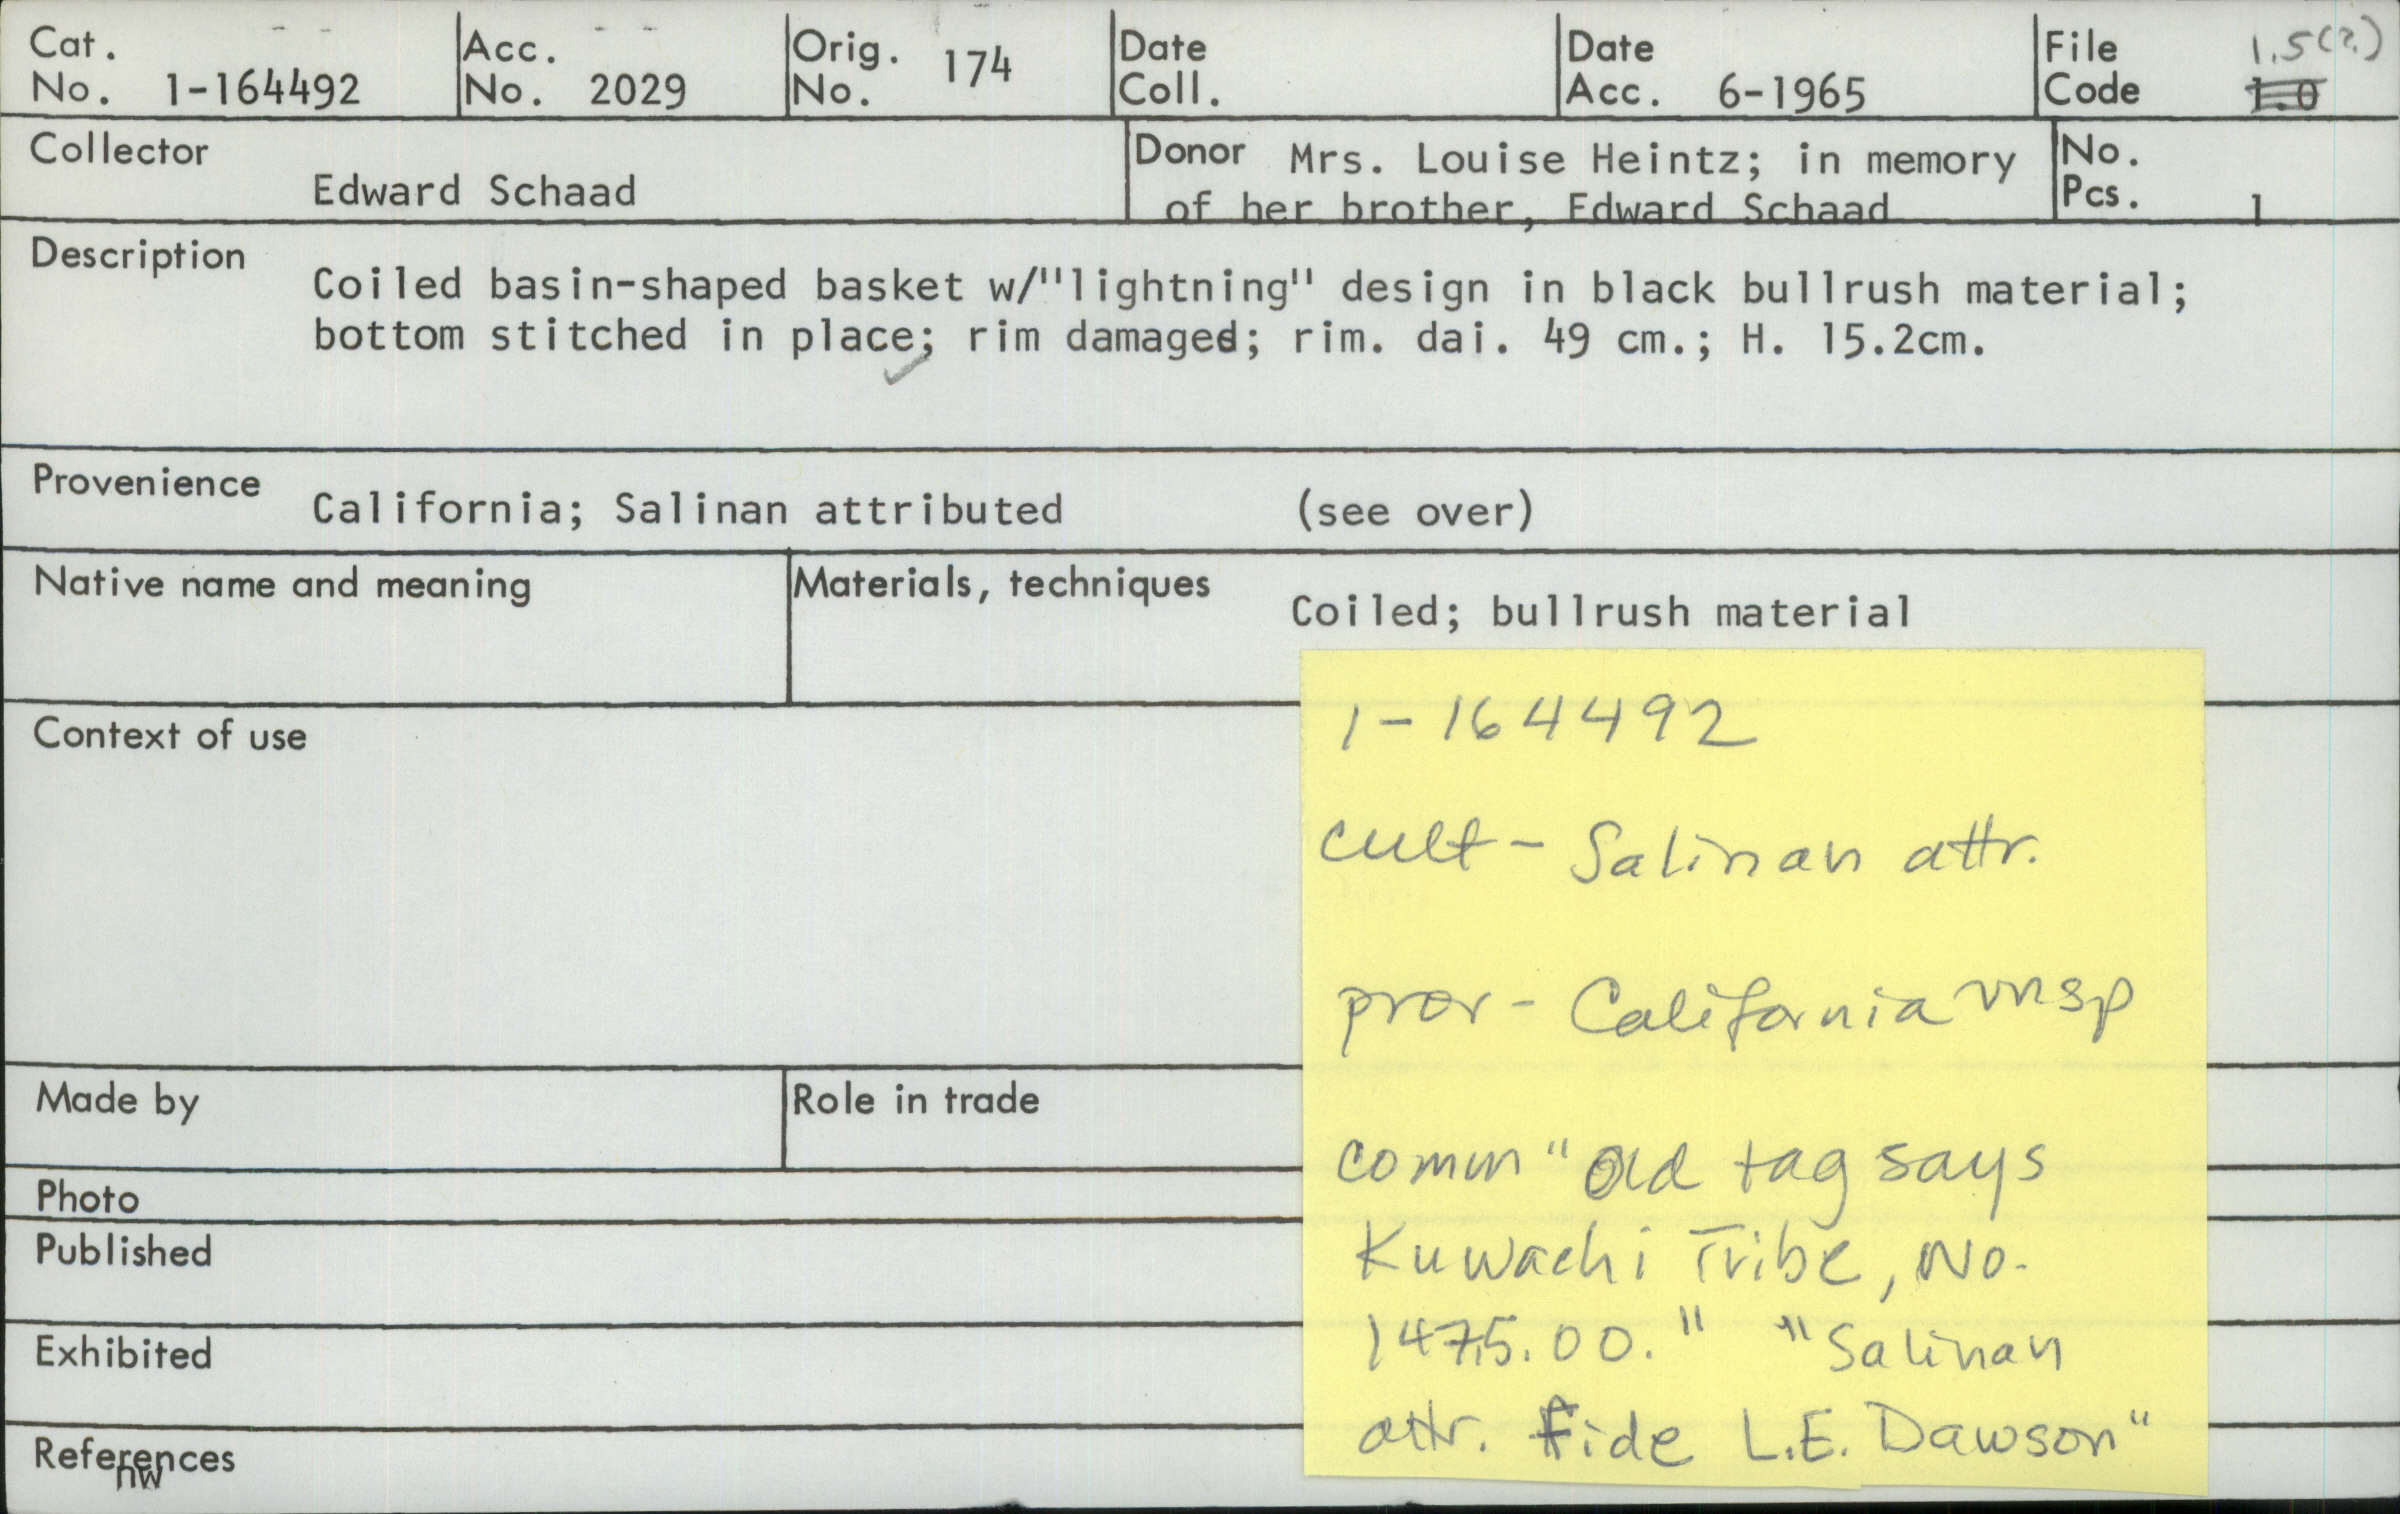 Cat. No. 1-164492
Acc. No. 2029
Orig. No. 174
Date Coll.
Date Acc. 6-1965
File Code 1.5(?) 1.0
Collector Edward Schaad
Donor Mrs. Louise Heintz; in memory
of her brother, Edward Schaad
No. Pcs. 1
Description
Coiled basin-shaped basket w/"lightning" design in black bullrush material;
bottom stitched in place; rim damaged; rim. dai. 49 cm.; H. 15.2cm.
Provenience California; Salinan attributed (see over)
Native name and meaning
Materials, techniques Coiled; bullrush material
Context of use
Made by
Role in trade
Photo
Published
Exhibited
References
nw
1-164492
cult - Salinan attr.
prov - California
comm "Old tag says
Kuwachi Tribe, No.
1475.00." "Salinan
attr. Fide L.E. Dawson"